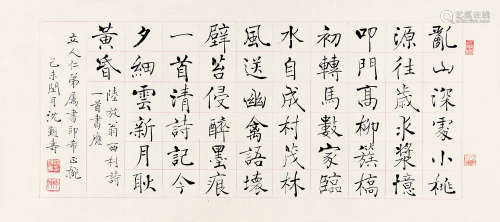 亂山深處小桃
源往歲求漿憶
叩門高柳簇橋
初轉馬數家臨
水自成村茂林
風送幽禽語壞
壁苔侵醉墨痕
一首清詩記今
夕細雲新月耿
黃昏
陸放翁西村詩
一首書應
立人仁弟屬書即希正
己未閏月沈覲壽